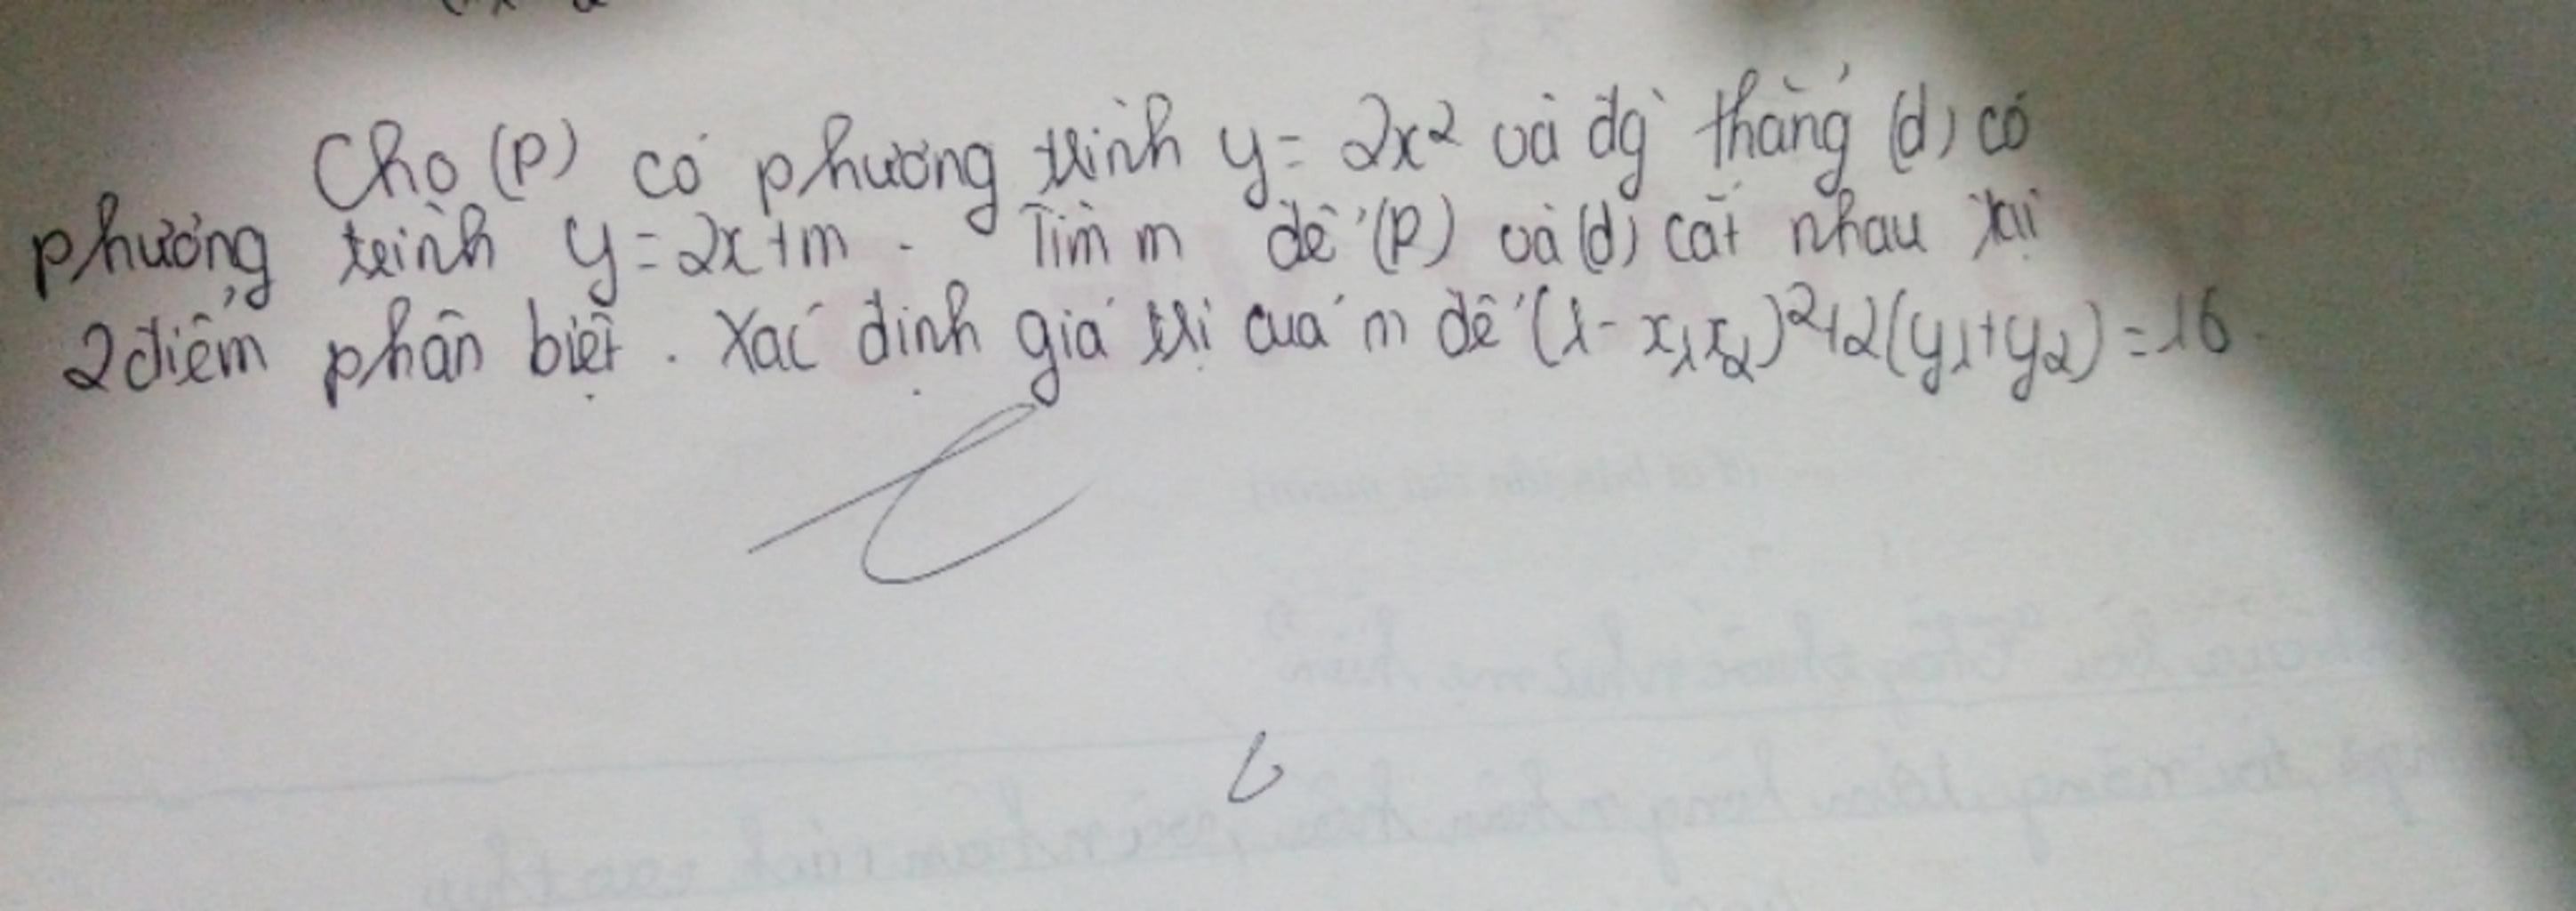 Cho (P) có phương trình y = 2x² và đg` thẳng (d) có
phương trình y = 2x + m . Tìm m để (P) và (d) cắt nhau tại
2 điểm phân biệt . Xác định giá trị của m để (1 - x₁x₂)² + 2(y₁ + y₂) = 16